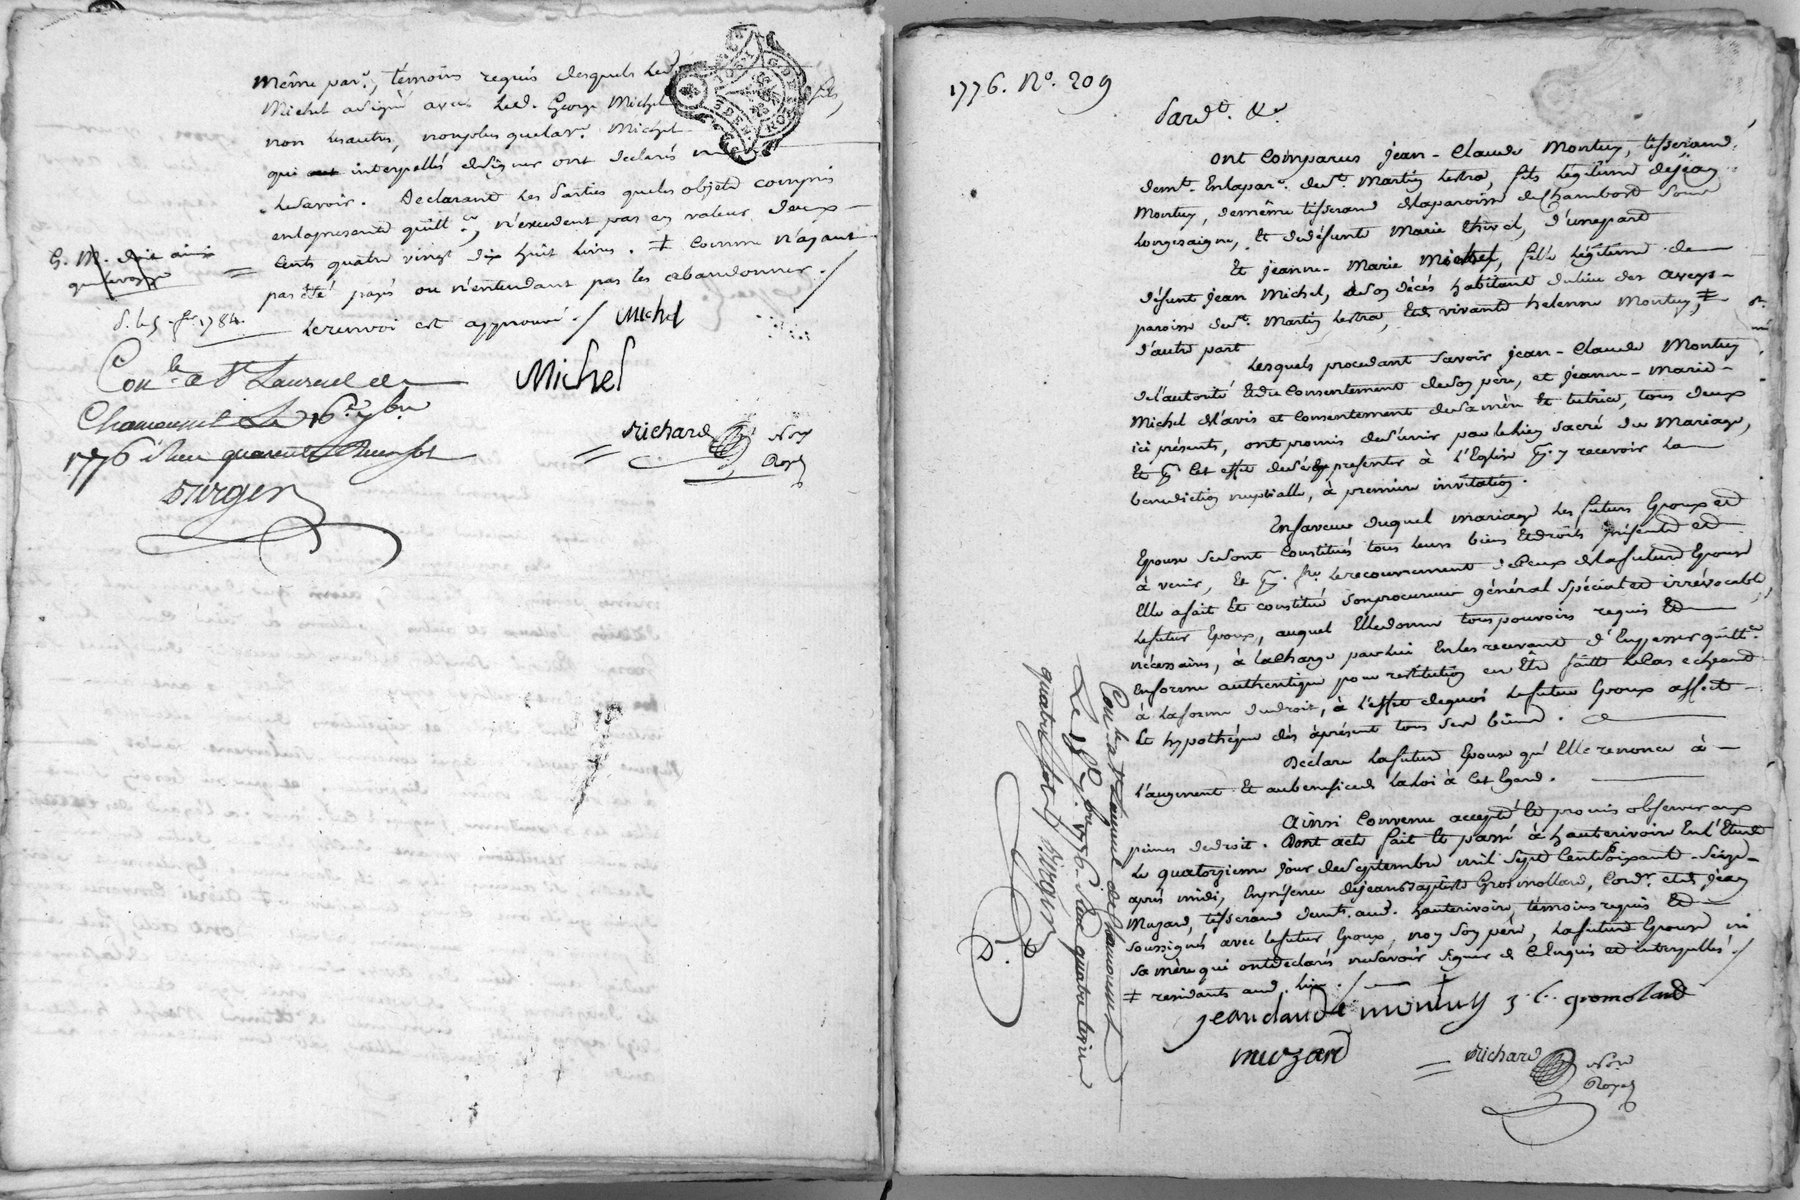 même par.e, témoins requis desquels led.
Michel a signé avec led. George Michel fils,
non les autres, non plus que la v.e Michel
qui interpellés de signer ont déclaré ne
le savoir. Declarant les Parties que les objets compris
en la presente quitt.ce, n'excedent pas en valeur deux
cents quatre vingt dix huit livres. ‡ comme n'ayant
pas été payés ou n'entendant pas les abandonner ./
Le renvoi est approuvé ./ Michel
1784.
Michel
Con.lé a St Laurent de
Chamousset Le 16.e 7bre
1776 Reçu quarante neuf sols
Richard Not.
Royal
1776. N.o 209
Pard.t &.a
Ont Comparus Jean-Claude Montuy, tisserand,
dem.t en la par.e de St. Martin Lestra, fils légitime de Jean
Montuy, de même tisserand de la paroisse de Chambost sous
Longesaigne, et de défunte Marie Thivel, d'une part
Et Jeanne-Marie Michel, fille légitime de
défunt Jean Michel, à son décès habitant du lieu des
paroisse de St. Martin Lestra, et de vivante helenne Montuy, ‡
d'autre part
Lesquels procedant savoir Jean-Claude Montuy
de l'autorité et du Consentement de son père, et Jeanne-Marie
Michel de l'avis et consentement de sa mère et tutrice, tous deux
ici présents, ont promis de s'unir par le lien sacré du Mariage,
et p.r cet effet de se présenter à l'Eglise p.r y recevoir la
benediction nuptialle, à première invitation.
En faveur duquel mariage les futurs Epoux et
Epouse se sont Constitués tous leurs biens et droits présents et
à venir, et p.r le recouvrement de ceux de la future Epouse
Elle a fait et constitué son procureur général spécial et irrévocable
le futur Epoux, auquel Elle donne tous pouvoirs requis et
nécessaires, à la charge par lui en les recevant d'en passer quitt.ce
en forme authentique pour restitution en être faitte le cas echeant
à la forme du droit, à l'effet de quoi le futur Epoux affecte
et hypothéque dès àprésent tous ses biens.
Déclare la future Epouse qu'Elle renonce à
l'augment et au benefice de la loi à cet Egard.
Ainsi Convenu accepté et promis observer aux
peines de droit. Dont acte fait et passé à hauterivoire En l'Etude
le quatorzieme jour de Septembre mil sept cent soixante-seize
après midi, En présence de Jean Baptiste Grosmollard, Cord.r et de Jean
Muzard, tisserand dem.ts aud. hauterivoire, témoins requis et
soussignés avec le futur Epoux, non son père, la future Epouse ni
sa mère qui ont déclaré ne savoir signer de ce enquis et interpellés ./
‡ residants aud. lieu ./
jean claude montuy J. b. gromolard
muzard
Richard Not.re
Royal
Con.lé a St Laurent de Chamousset
Le 18.e 7bre 1776. Reçu quatre livres
quatre sols